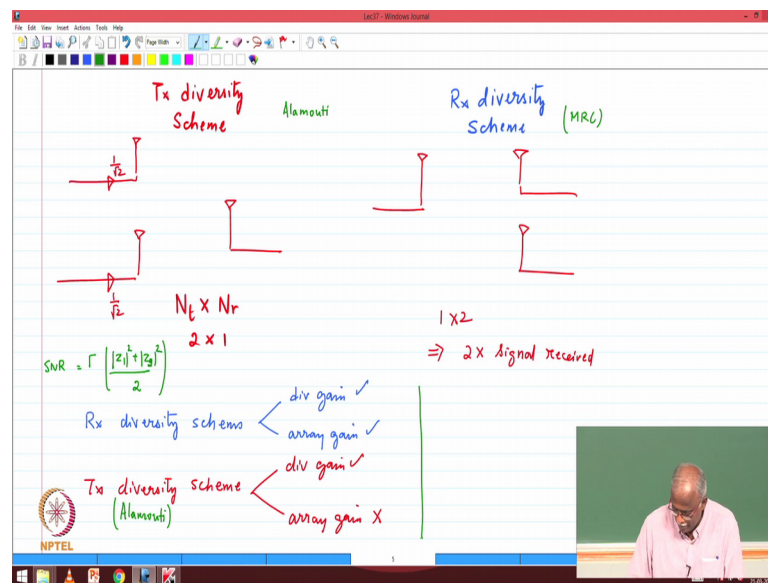 Lec37 - Windows Journal
File Edit View Insert Actions Tools Help
Page Width
B I
Tx diversity
Scheme
Alamouti
Rx diversity
Scheme
(MRC)
1/√2
1/√2
Nt x Nr
2 x 1
1 x 2
⇒ 2x signal received
SNR = Γ (|z1|^2 + |z2|^2 / 2)
Rx diversity schems
div gain ✓
array gain ✓
Tx diversity scheme
(Alamouti)
div gain ✓
array gain X
NPTEL
5